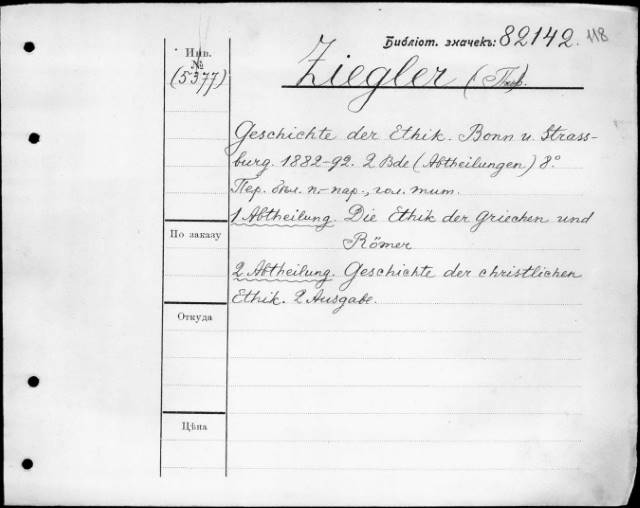 Библіот. значекъ: 82142. 118
Инв.
№
(5377)
Ziegler
Geschichte der Ethik. Bonn u. Strass-
burg. 1882-92. 2 Bde (Abtheilungen) 8°
Пер. бѣл. п.-пар., гол. тит.
1 Abtheilung. Die Ethik der Griechen und
Römer
По заказу
2 Abtheilung. Geschichte der christlichen
Ethik. 2 Ausgabe.
Откуда
Цѣна